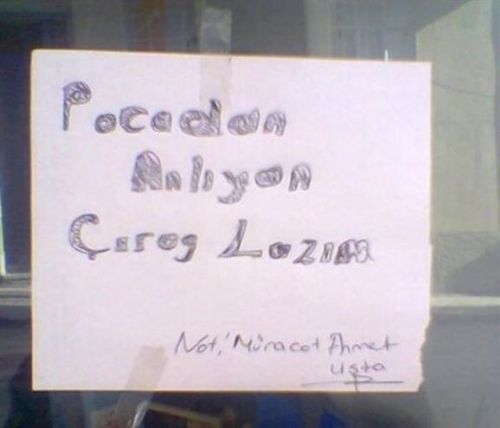 Pocadan
Anlıyon
Çırag Lazım
Not; Müracat Ahmet
Usta